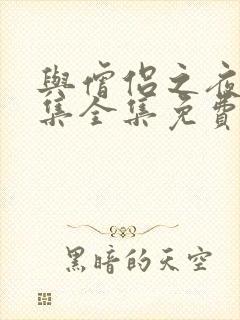 與僧侶之夜
集全集免費
黑暗的天空